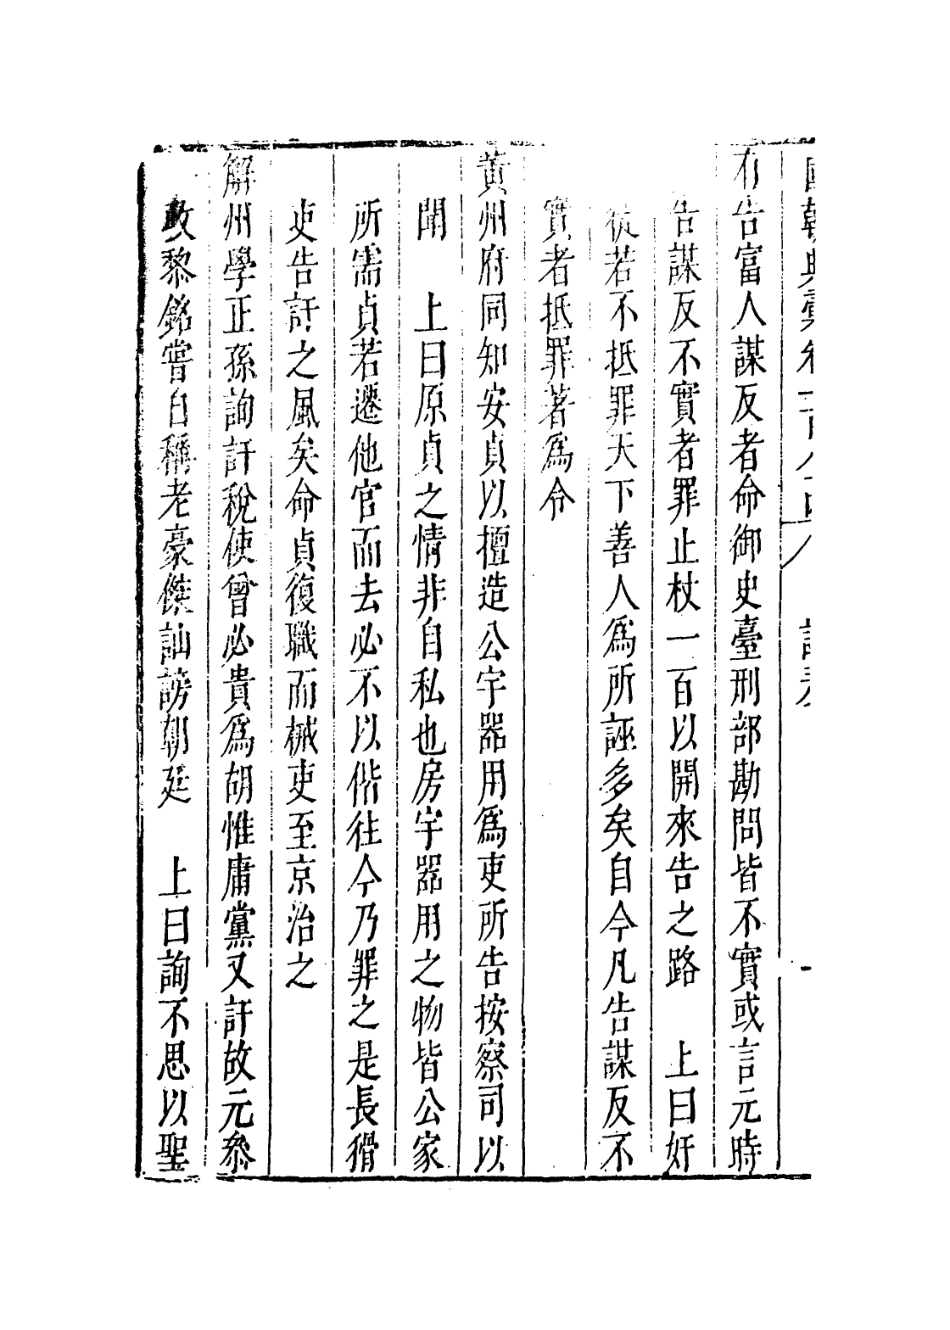 有告富人謀反者命御史臺刑部勘問皆不實或言元時
告謀反不實者罪止杖一百以開來告之路　上曰奸
徒若不抵罪天下善人爲所誣多矣自今凡告謀反不
實者抵罪著爲令
黃州府同知安貞以擅造公宇器用爲吏所告按察司以
聞　上曰原貞之情非自私也房宇器用之物皆公家
所需貞若遷他官而去必不以偕往今乃罪之是長猾
吏告訐之風矣命貞復職而械吏至京治之
解州學正孫詢訐稅使曾必貴爲胡惟庸黨又訐故元參
政黎銘嘗自稱老豪傑訕謗朝廷　上曰詢不思以聖